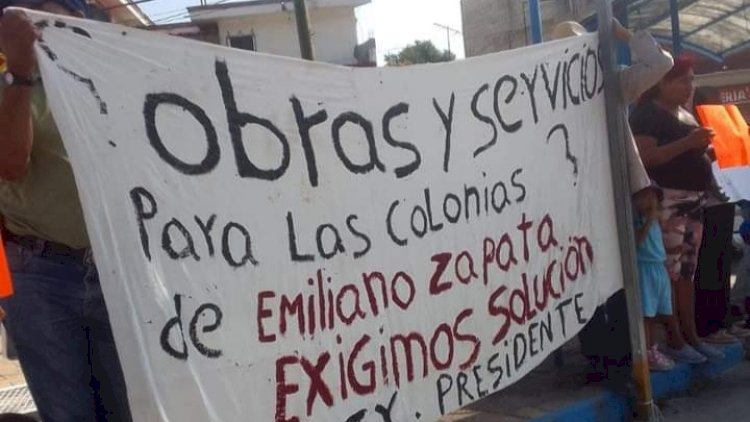 ¿obras y servicios
Para Las Colonias ?
de EMILIANO ZAPATA
EXIGIMOS SOLUCIÓN
PRESIDENTE